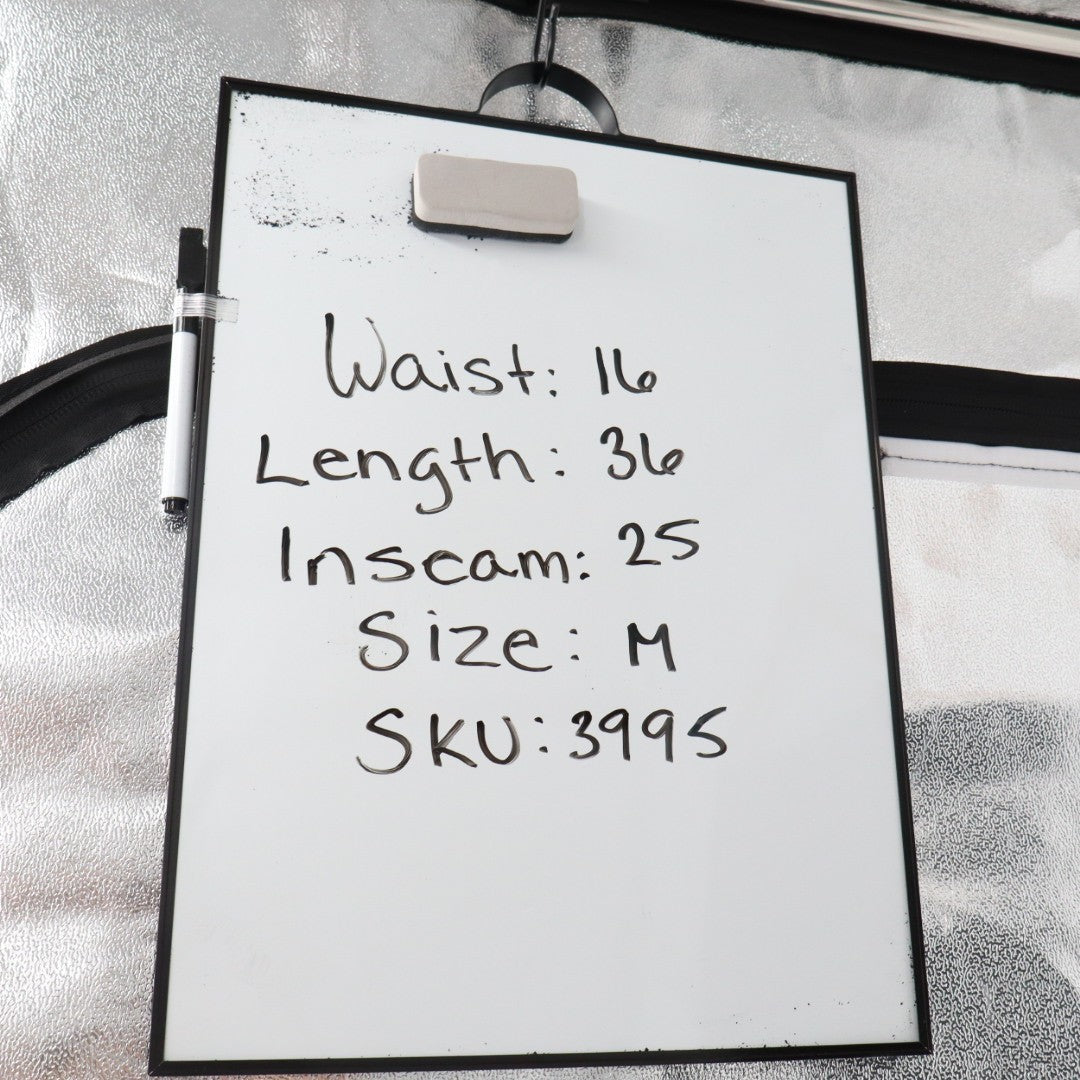 Waist: 16
Length: 36
Inseam: 25
Size: M
SKU: 3995